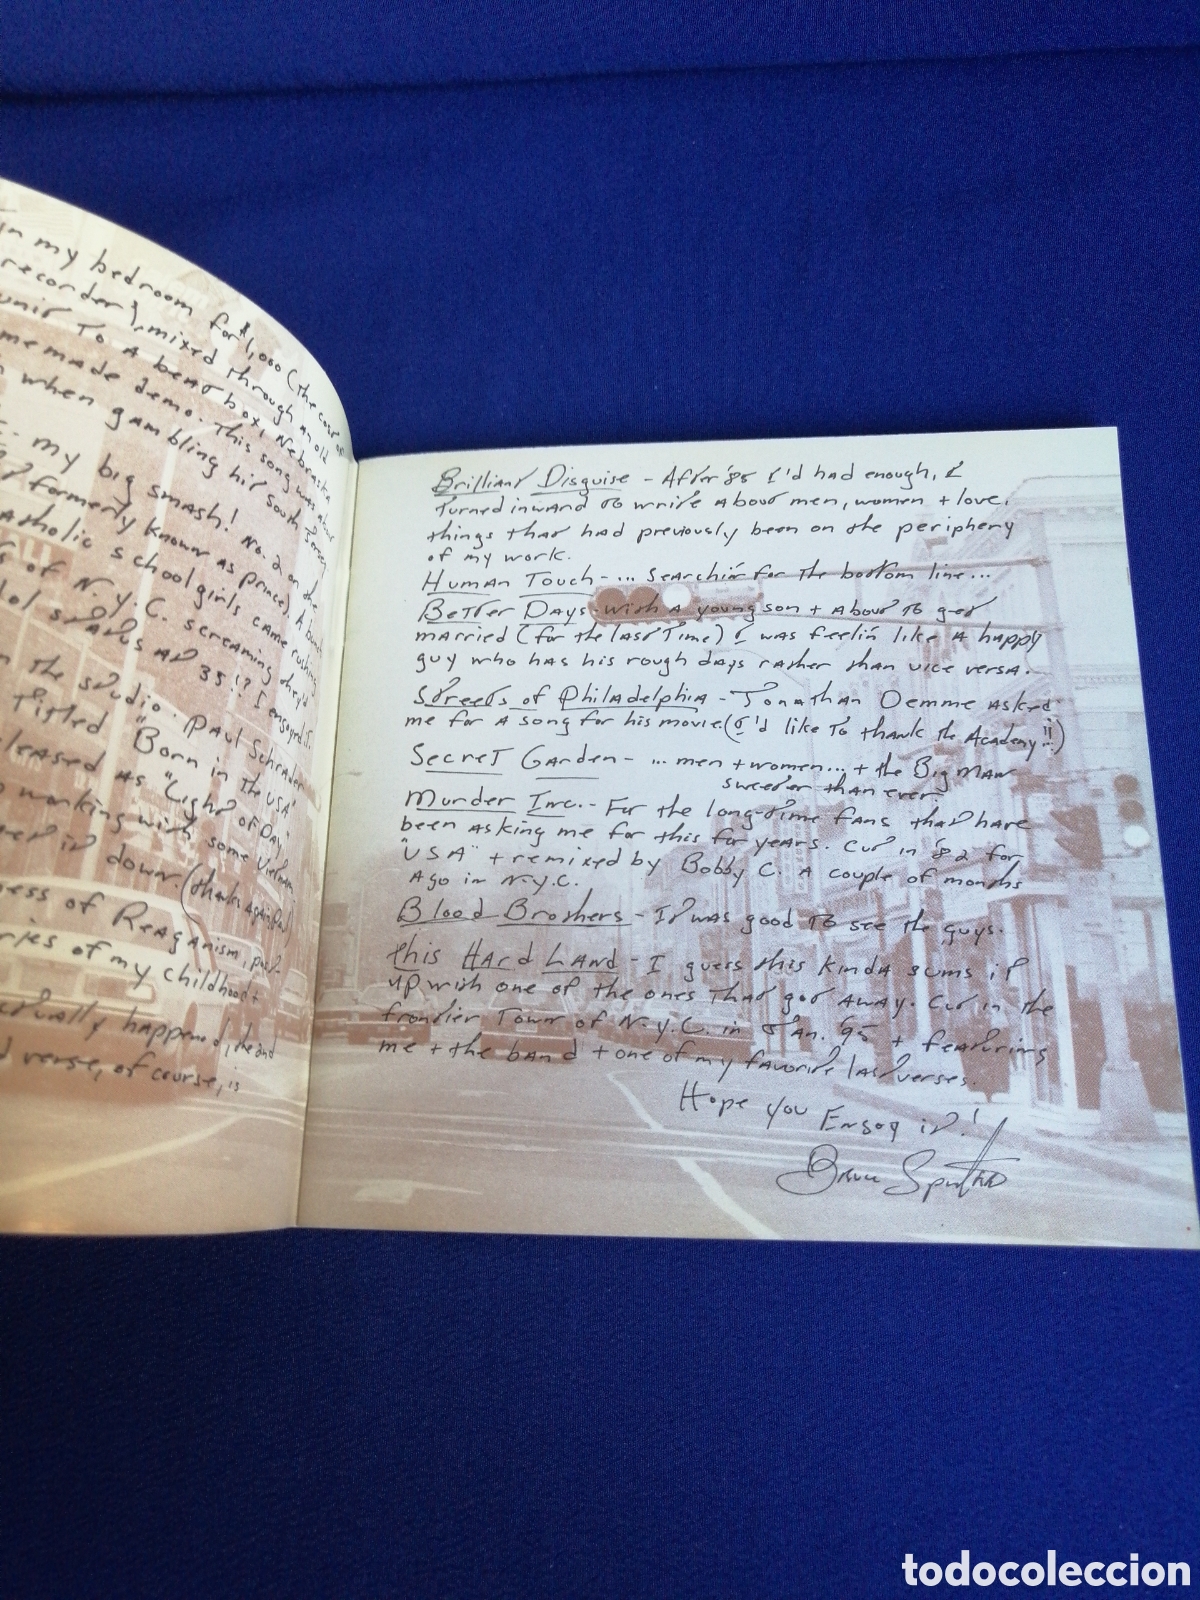 in my bedroom for $1,000 (the cost of
recorder), mixed through an old
unit to a beat box! Nebraska
me made demo. This song was about
when gambling hit South Jersey
- my big smash! No. 2 on the
formerly known as prince). A bunch
atholic school girls came rushing
s of N.Y.C. screaming they'd
dol status at 35!? I enjoyed it.
n the studio. Paul Schrader
titled "Born in the USA"
leased as "Light of Day,"
working with some Vietnam
it down. (thanks again, Paul)
ess of Reaganism, past
ries of my childhood +
tually happened, the 2nd
d verse, of course, is
Brilliant Disguise - After '85 I'd had enough, I
turned inward to write about men, women + love,
things that had previously been on the periphery
of my work.
Human Touch - ... searchin' for the bottom line...
Better Days - with a young son + about to get
married (for the last time) I was feelin' like a happy
guy who has his rough days rather than vice versa.
Streets of Philadelphia - Jonathan Demme asked
me for a song for his movie. (I'd like to thank the Academy!!)
Secret Garden - ... men + women... + the Big Man
sweeter than ever.
Murder Inc. - For the long-time fans that have
been asking me for this for years. Cut in '82 for
"USA" + remixed by Bobby C. a couple of months
ago in N.Y.C.
Blood Brothers - It was good to see the guys.
this Hard Land - I guess this kinda sums it
up with one of the ones that got away. Cut in the
frontier town of N.Y.C. in Jan. '95 + featuring
me + the band + one of my favorite last verses.
Hope you Enjoy it!
Bruce Springsteen
todocoleccion